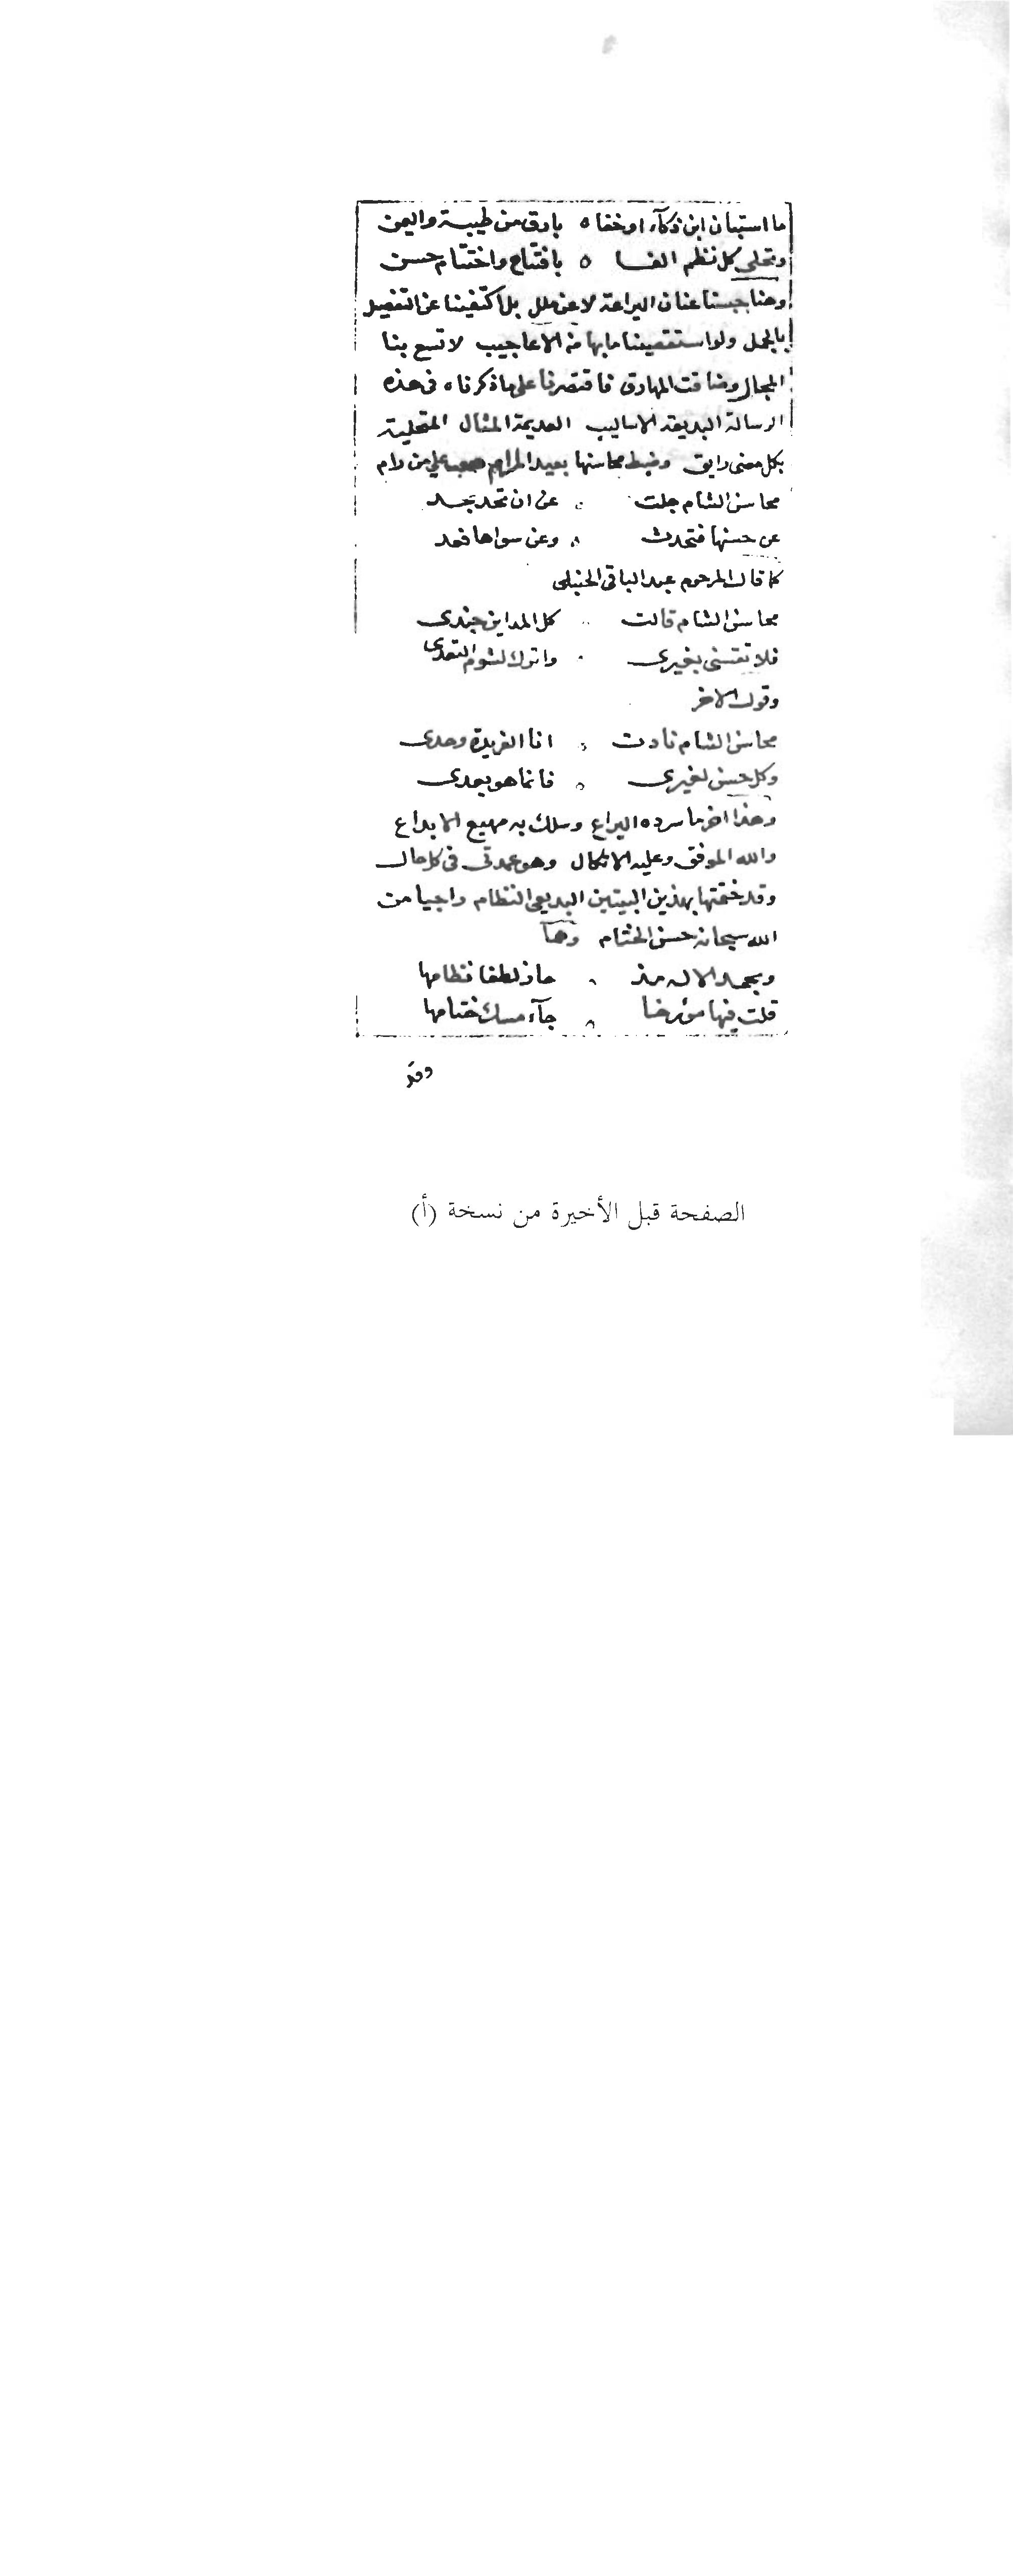 ما استبان ابن ذكآء او خفا ه بارق من طيبة واليمن
وتحلى كل نظم الفا ه بافتتاح واختتام حسن
وهنا حبسنا عنان اليراعة لا عن ملل بل اكتفينا عن التفصيل
بالجمل ولو استقصينا ما بها من الاعاجيب لاتسع بنا
المجال وضاقت المهارق فاقتصرنا على ما ذكرناه في هذه
الرسالة البديعة الاساليب العديمة المثال المتحلية
بكل معنى رايق وضبط محاسنها بعيد المرام صعب على من رام
محاسن الشام جلت عن ان تحد بحد
عن حسنها فتحدث وعن سواها فعد
كما قال المرحوم عبد الباقى الحنبلى
محاسن الشام قالت كل المداين جندى
فلا تقسنى بغيرى واترك لشوم التعدى
وقول الاخر
محاسن الشام نادت انا الفريدة وحدى
وكل حسن لغيرى فانما هو بعدى
وهذا اخر ما سرده اليراع وسلك به مهيع الابداع
والله الموفق وعليه الاتكال وهو عمدتى فى كل حال
وقد ختمتها بهذين البيتين البديعى النظام راجيا من
الله سبحانه حسن الختام وهما
وبحمد الاله مذ حاز لطفا نظامها
قلت فيها مؤرخا جآء مسك ختامها
وقد
الصفحة قبل الأخيرة من نسخة (أ)